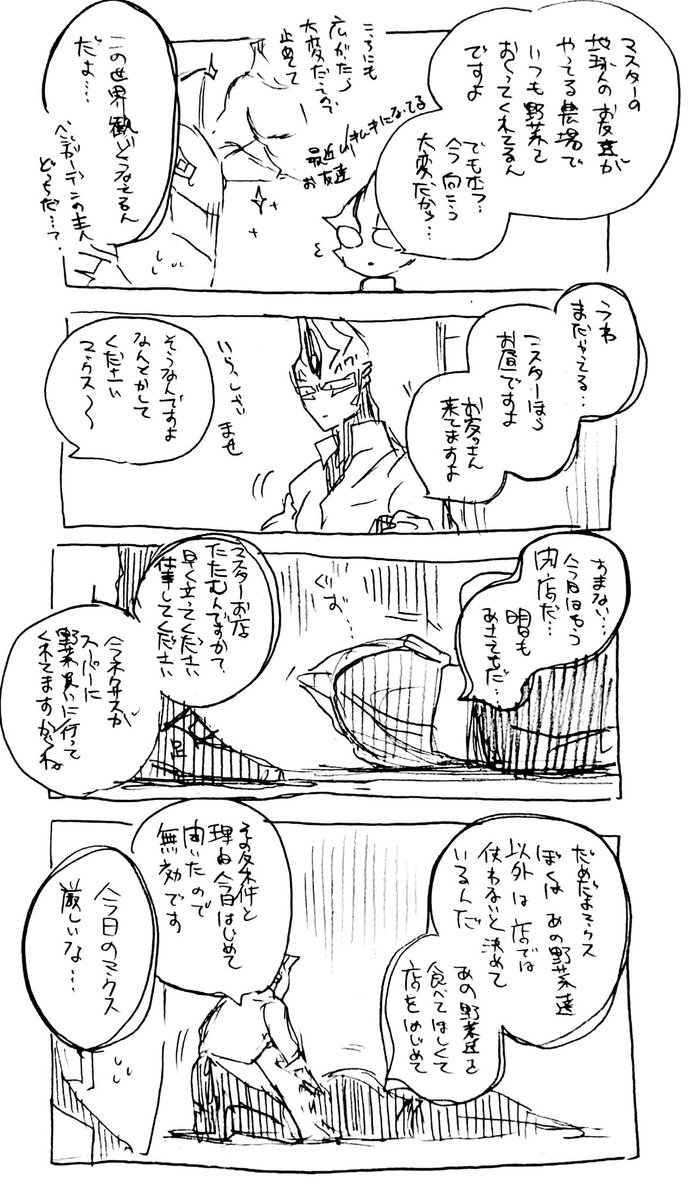 マスターの
地球人のお友達が
やってる農場で
いつも野菜を
おくってくれてるん
ですよ
でもホラ…
今向こう
大変だから…
こっちにも
広がったら
大変だってので
止めて
最近ムキムキになってる
お友達
この世界観どうなってるん
だよ…
どっちだ…?
うわ
まだやってる…
ミスターほら
お昼ですよ
お客さん
来てますよ
いらっしゃい
ませ
そうなんですよ
なんとかして
ください
マックス〜
すまない…
今日はもう
閉店だ…
明日も
あさってもだ…
ぐず…
マスターお店
たたむんですか?
早く立って
仕事してください
今ネクサスが
スーパーに
野菜買いに行って
くれてますからね
だめだよマックス
ぼくはあの野菜達
以外は店では
使わないと決めて
いるんだ
あの野菜達を
食べてほしくて
店をはじめて
その条件と
理由今日はじめて
聞いたので
無効です
今日のマックス
厳しいな…